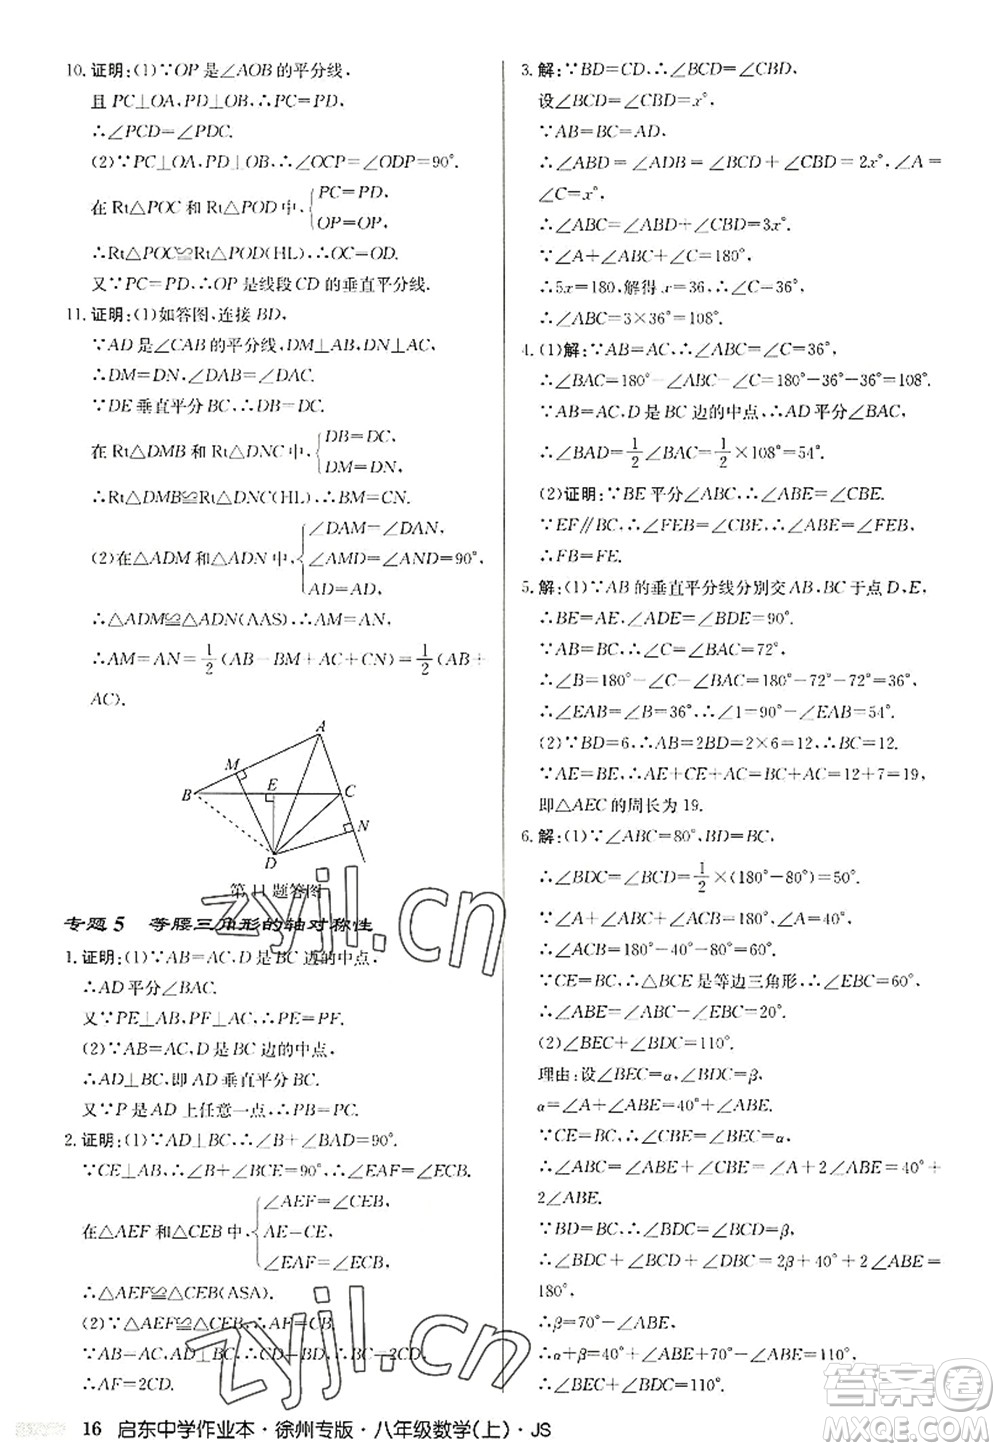 10. 证明:(1)∵OP 是∠AOB 的平分线,
且 PC⊥OA,PD⊥OB,∴PC=PD,
∴∠PCD=∠PDC.
(2)∵PC⊥OA,PD⊥OB,∴∠OCP=∠ODP=90°.
在 Rt△POC 和 Rt△POD 中,{PC=PD,
OP=OP,
∴Rt△POC≌Rt△POD(HL),∴OC=OD.
又∵PC=PD,∴OP 是线段 CD 的垂直平分线.
11. 证明:(1)如答图,连接 BD,
∵AD 是∠CAB 的平分线,DM⊥AB,DN⊥AC,
∴DM=DN,∠DAB=∠DAC.
∵DE 垂直平分 BC,∴DB=DC.
在 Rt△DMB 和 Rt△DNC 中,{DB=DC,
DM=DN,
∴Rt△DMB≌Rt△DNC(HL),∴BM=CN.
(2)在△ADM 和△ADN 中,{∠DAM=∠DAN,
∠AMD=∠AND=90°,
AD=AD,
∴△ADM≌△ADN(AAS),
∴AM=AN=1/2(AB-BM+AC+CN)=1/2(AB+
AC).
A
M
B
E
C
N
D
第 11 题答图
专题 5 等腰三角形的轴对称性
1. 证明:(1)∵AB=AC,D 是 BC 边的中点,
∴AD 平分∠BAC.
又∵PE⊥AB,PF⊥AC,∴PE=PF.
(2)∵AB=AC,D 是 BC 边的中点,
∴AD⊥BC,即 AD 垂直平分 BC.
又∵P 是 AD 上任意一点,∴PB=PC.
2. 证明:(1)∵AD⊥BC,∴∠B+∠BAD=90°.
∵CE⊥AB,∴∠B+∠BCE=90°,∴∠EAF=∠ECB.
在△AEF 和△CEB 中,{∠AEF=∠CEB,
AE=CE,
∠EAF=∠ECB,
∴△AEF≌△CEB(ASA).
(2)∵△AEF≌△CEB,∴AF=BC.
∵AB=AC,AD⊥BC,∴CD=BD,BC=2CD,
∴AF=2CD.
3. 解:∵BD=CD,∴∠BCD=∠CBD,
设∠BCD=∠CBD=x°,
∵AB=BC=AD,
∴∠ABD=∠ADB=∠BCD+∠CBD=2x°,∠A=
∠C=x°.
∴∠ABC=∠ABD+∠CBD=3x°.
∵∠A+∠ABC+∠C=180°,
∴5x=180,解得 x=36,∴∠CBD=36°,
∴∠ABC=3×36°=108°.
4. (1)解:∵AB=AC,∴∠ABC=∠C=36°,
∴∠BAC=180°-∠ABC-∠C=180°-36°-36°=108°.
∵AB=AC,D 是 BC 边的中点,∴AD 平分∠BAC,
∴∠BAD=1/2∠BAC=1/2×108°=54°.
(2)证明:∵BE 平分∠ABC,∴∠ABE=∠CBE.
∵EF∥BC,∴∠FEB=∠CBE,∴∠ABE=∠FEB,
∴FB=FE.
5. 解:(1)∵AB 的垂直平分线分别交 AB,BC 于点 D,E,
∴BE=AE,∠ADE=∠BDE=90°.
∵AB=BC,∴∠BAC=∠C=72°,
∴∠B=180°-∠C-∠BAC=180°-72°-72°=36°,
∴∠EAB=∠B=36°,∴∠1=90°-∠EAB=54°.
(2)∵BD=6,∴AB=2BD=2×6=12,∴BC=12.
∵AE=BE,∴AE+CE+AC=BC+AC=12+7=19,
即△AEC 的周长为 19.
6. 解:(1)∵∠ABC=80°,BD=BC,
∴∠BDC=∠BCD=1/2×(180°-80°)=50°.
∵∠A+∠ABC+∠ACB=180°,
∴∠ACB=180°-40°-80°=60°.
∵CE=BC,∴△BCE是等边三角形,∴∠EBC=60°,
∴∠ABE=∠ABC-∠EBC=20°.
(2)∠BEC+∠BDC=110°.
理由:设∠BEC=α,∠BDC=β,
α=∠A+∠ABE=40°+∠ABE.
∵CE=BC,∴∠CBE=∠BEC=α,
∴∠ABC=∠ABE+∠CBE=∠A+2∠ABE=40°+
2∠ABE.
∵BD=BC,∴∠BDC=∠BCD=β,
∴∠BDC+∠BCD+∠DBC=2β+40°+2∠ABE=
180°,
∴β=70°-∠ABE,
∴α+β=40°+∠ABE+70°-∠ABE=110°,
∴∠BEC+∠BDC=110°.
16 启东中学作业本·徐州专版·八年级数学(上)·JS
zyjl.cn
zyjl.cn
答案圈
MXQE.COM